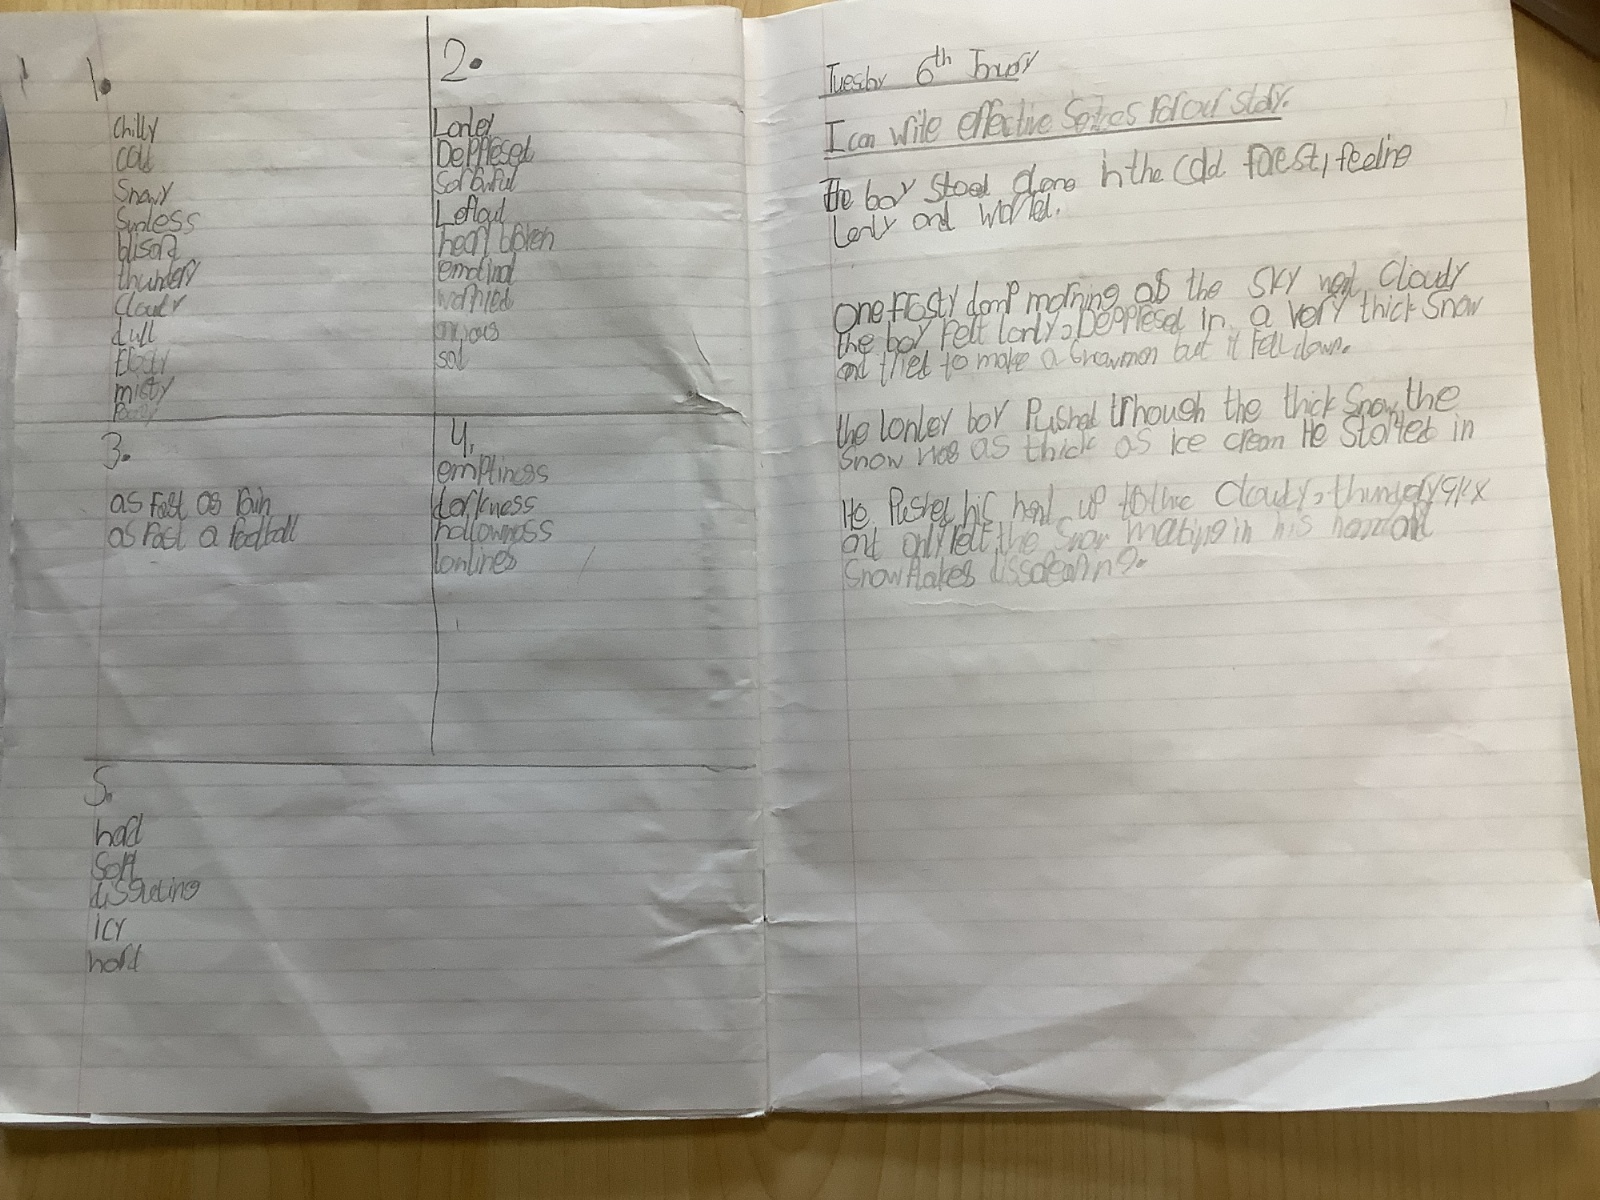 1.
Chilly
Cold
Snowy
Sunless
blisard
thundery
Cloudy
dull
frosty
misty
2.
Lonley
Deppresed
Sorowful
Leftout
heart broken
emotinal
worried
sad
3.
as fast as rain
as fast a football
4.
emptiness
darkness
hollowness
lonlines
5.
hard
Soft
icy
hard
Tuesday 6th
I can write effective for our story.
The boy stood alone in the cold forest, feeling
lonly and
One frosty damp morning as the sky went Cloudy
the boy felt lonly, Deppresed in a very thick Snow
and tried to make a Snowman but it fell down.
the lonley boy Pushed through the thick Snow the
Snow was as thick as ice cream He Started in
He Pushed his hand up to the Cloudy, thundery sky
and only felt the Snow in his hand and
Snowflakes